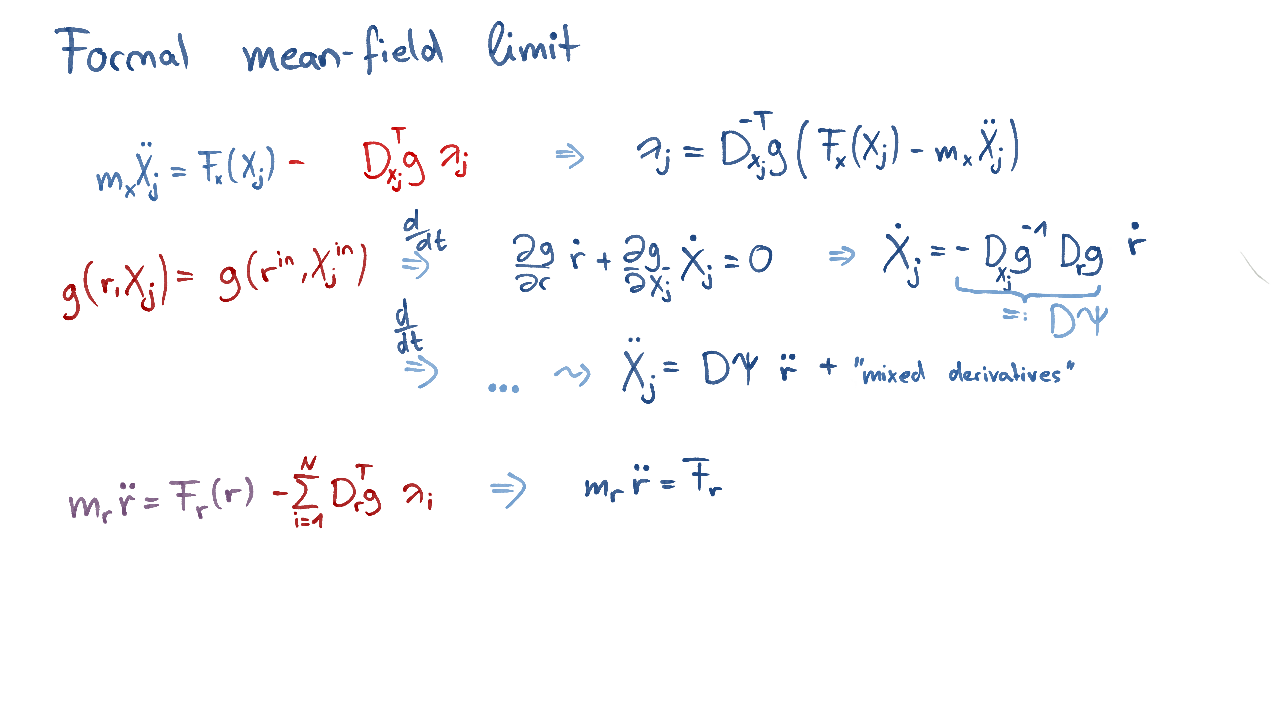 Formal mean-field limit
m_x Ẍ_j = F_x(X_j) - D_{x_j}^T g λ_j ⇒ λ_j = D_{x_j}^{-T} g (F_x(X_j) - m_x Ẍ_j)
g(r, X_j) = g(r^{in}, X_j^{in}) d/dt ⇒ ∂g/∂r ṙ + ∂g/∂X_j Ẋ_j = 0 ⇒ Ẋ_j = - D_{x_j} g^{-1} D_r g ṙ
=: DΨ
d/dt ⇒ ... ⇝ Ẍ_j = DΨ r̈ + "mixed derivatives"
m_r r̈ = F_r(r) - ∑_{i=1}^N D_r^T g λ_i ⇒ m_r r̈ = F_r